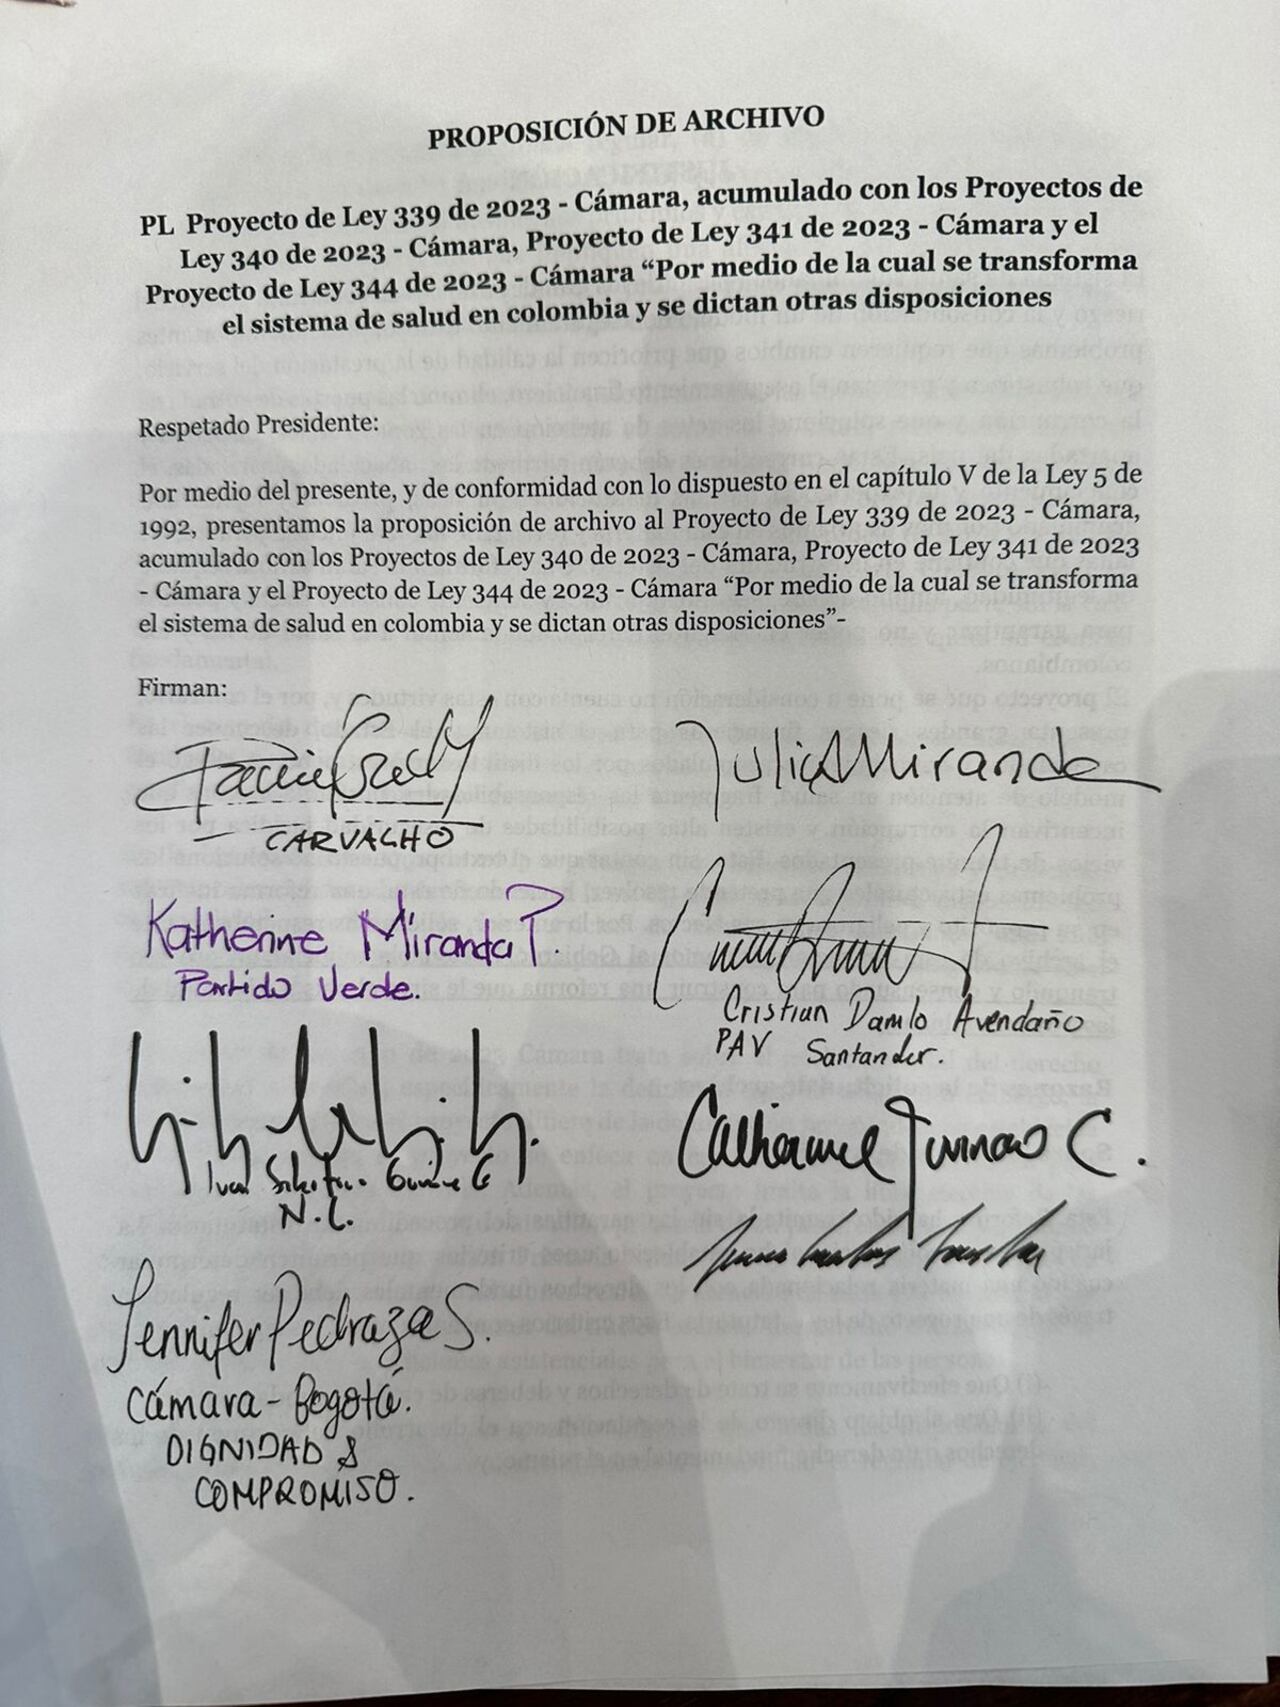 PROPOSICIÓN DE ARCHIVO
PL Proyecto de Ley 339 de 2023 - Cámara, acumulado con los Proyectos de
Ley 340 de 2023 - Cámara, Proyecto de Ley 341 de 2023 - Cámara y el
Proyecto de Ley 344 de 2023 - Cámara “Por medio de la cual se transforma
el sistema de salud en colombia y se dictan otras disposiciones
Respetado Presidente:
Por medio del presente, y de conformidad con lo dispuesto en el capítulo V de la Ley 5 de
1992, presentamos la proposición de archivo al Proyecto de Ley 339 de 2023 - Cámara,
acumulado con los Proyectos de Ley 340 de 2023 - Cámara, Proyecto de Ley 341 de 2023
- Cámara y el Proyecto de Ley 344 de 2023 - Cámara “Por medio de la cual se transforma
el sistema de salud en colombia y se dictan otras disposiciones”-
Firman:
CARVALHO
Julia Miranda
Katherine Miranda P.
Partido Verde.
Cristian Danilo Avendaño
PAV Santander.
N.L.
Catherine Juvinao C.
Jennifer Pedraza S.
Cámara - Bogotá.
DIGNIDAD &
COMPROMISO.